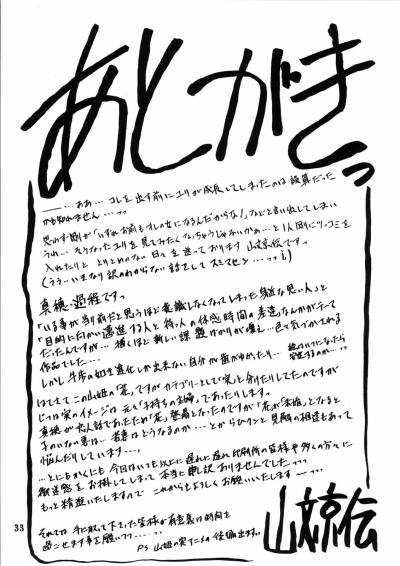 あとがきっ
──…ああ… コレを出す前にユリが成長してしまったのは誤算だった
かも知れません…っっ
思わず剛が「いずれお前もオレの女になるんだからな!」などと言い出してしまい
うれ…そうなったユリを見てみたくなっちゃうじゃないかぁ…と1人側にツッコミを
入れたりと とりとめのない日々を送っております 山文京伝ですっ
(うぅ…いきなり訳のわからない話をして スミマセン…っっ)
真穂・過程ですっ
「いる事が当り前だと思うほど意識しなくなってしまった身近な思い人」と
「目的に向かい邁進する人と待つ人の体感時間の差違」なんかがテーマ
だったんですが… 描くほど新しい課題ばかりが増え…色々気づかされる
作品でした…
しかし牛歩の如き進化しか出来ない自分が歯がゆかったり…
はてさて この山姫の「花」ですが カテゴリーとして「実」と分けたりしてたのですが
じつは実のイメージは元々「子持ちの主婦」であったりします。
真穂が出ん話であったため「花」登場となったのですが「花」が「本格」となると
子のいない妻は… 若妻はどうなるのか…とかのワクンと 見解の相違もあって
悩んだりしています…。
…とにもかくにも 今回はいつも以上に遅れに遅れ 印刷所の皆様や多くの方々に
御迷惑をお掛けしまして 本当に申し訳ありませんでしたっっ
もっと精進いたしますので これからもよろしくお願いいたします──っっ
それでは 手に取って下さった皆様が有意義な時間を
過ごせます事を願いつつ……っっ
PS 山姫の実アニメの後編出ますっ
山文京伝
33